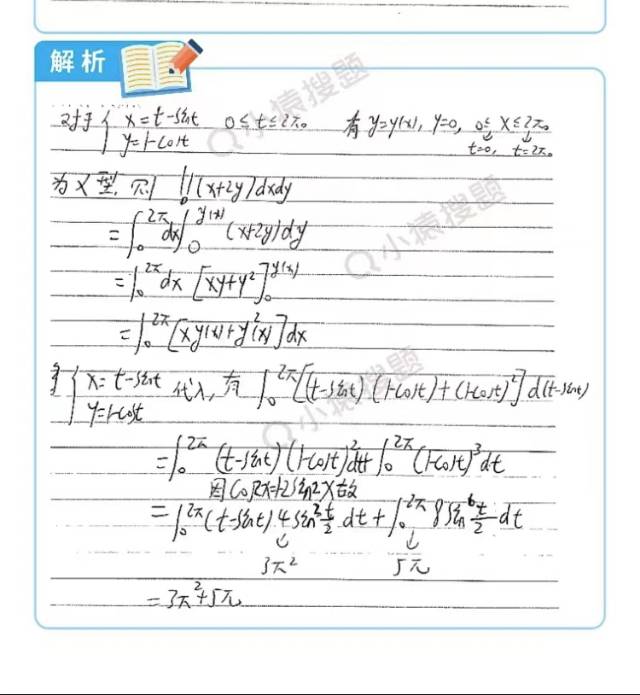 解析
对于 { x=t-sint 0≤t≤2π。 有 y=y(x), y=0, 0≤x≤2π。
y=1-cost t=0, t=2π。
为X型，则 ∬D (x+2y)dxdy
=∫₀^2π dx∫₀^y(x) (x+2y)dy
=∫₀^2π dx [xy+y²]₀^y(x)
=∫₀^2π [xy(x)+y²(x)]dx
{ x=t-sint 代入，有 ∫₀^2π [(t-sint)(1-cost)+(1-cost)²] d(t-sint)
y=1-cost
=∫₀^2π (t-sint)(1-cost)²dt+∫₀^2π (1-cost)³dt
因cos2x=1-2sin2x故
=∫₀^2π (t-sint) 4sin t/2 dt+∫₀^2π 8sin⁶ t/2 dt
↓ ↓
3π² 5π
=3π²+5π
小猿搜题
小猿搜题
小猿搜题